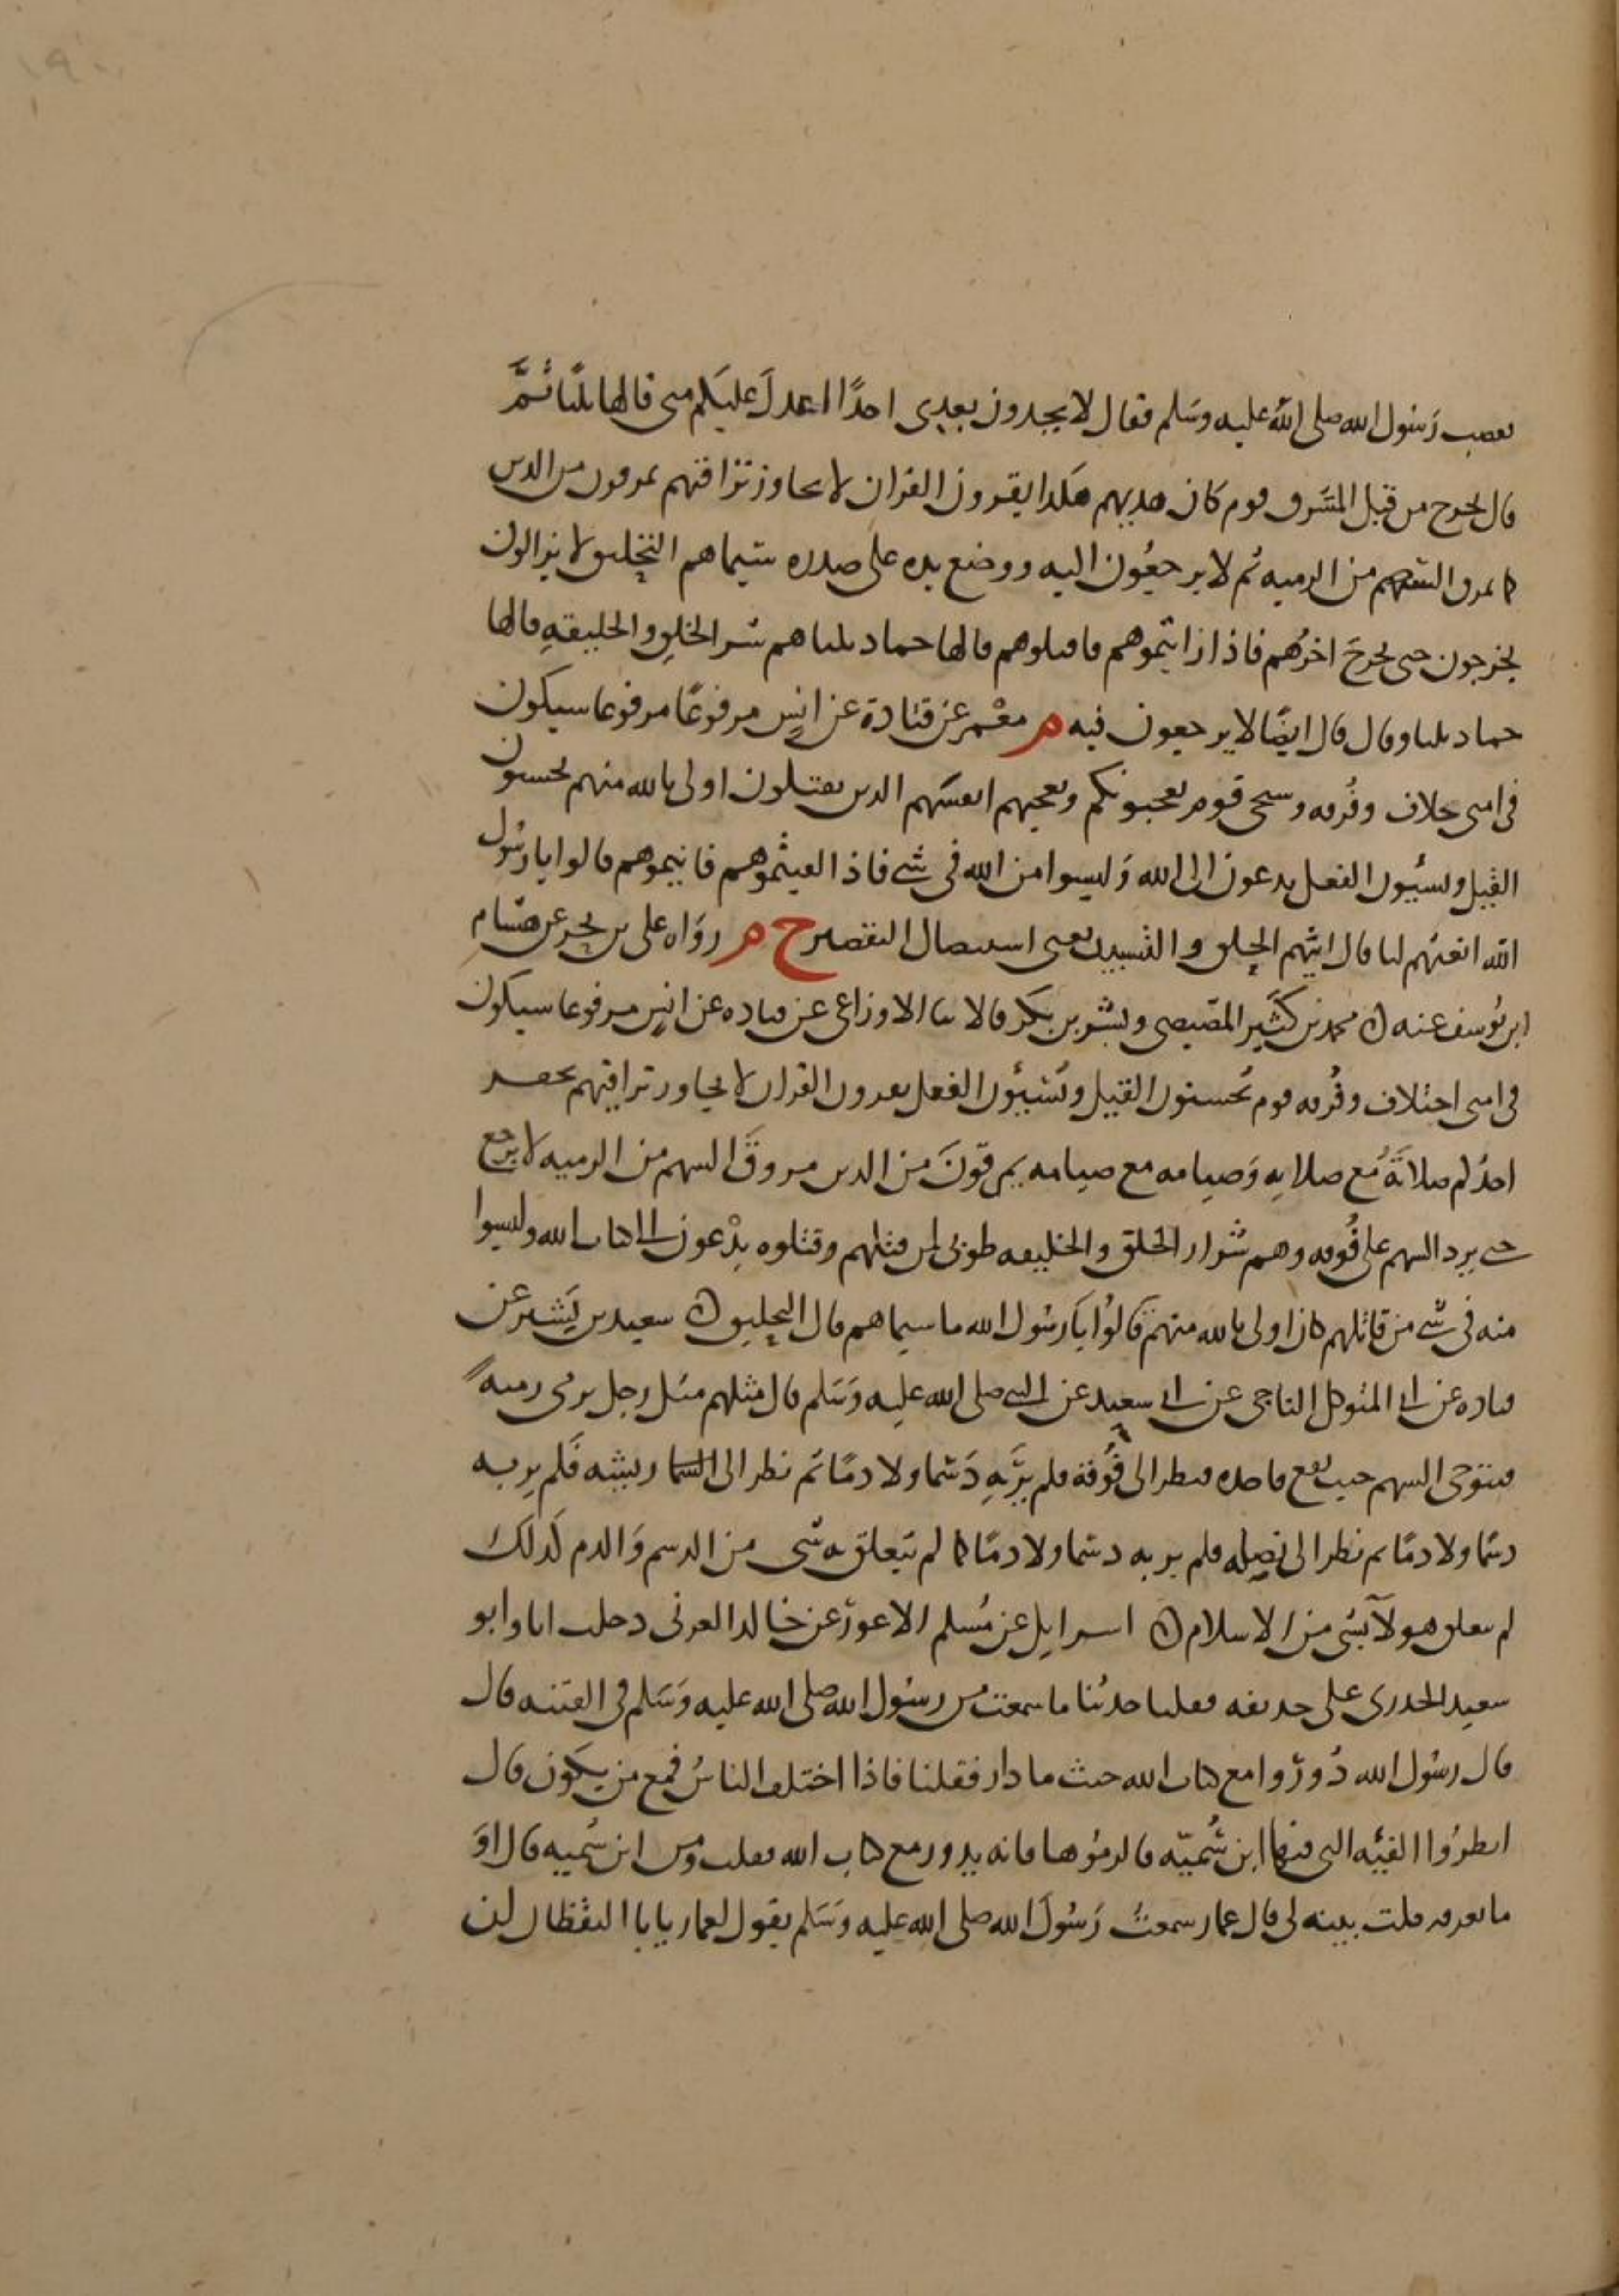 فغضب رَسُول الله صلى الله عليه وسَلم فقال لا يجدون بعدى احدًا اعدلَ عليكم منى قالها ثلثا ثُمَّ
قال يخرج من قبل المشرق قوم كان هديهم هكذا يقرون القران لا يجاوز تراقيهم يمرقون من الدين
كما يمرق السهم من الرميه ثم لا يرجعُون اليه ووضع يده على صدره سيماهم التحليق لا يزالون
يخرجون حتى يخرجَ اخرُهم فاذا رايتموهم فاقتلوهم قالها حماد ثلثا هم شر الخلق والخليقهِ قالها
حماد ثلثا وقال قال ايضًا لا يرجعون فيه م معْمر عن قتادة عن انسٍ مرفوعًا مرفوعا سيكون
فى امتى خلاف وفُرقه وسيجى قوم يعجبونكم وتعجبهم انفسهم الذين يقتلون اولى بالله منهم يحسنون
القيل ويسيُون الفعل يدعون الى الله وَليسوا من الله فى شى فاذا لقيتموهم فانيموهم قالوا يا رسُول
الله انعتهم لنا قال ايتهم الحلق والتسبيد يعنى استئصال التقصير ح م روَاه على بن بحر عن هشام
ابن يُوسف عنه ن محمد بن كثَير المصّيصى وبشر بن بكر قالا ثنا الاوزاعى عن قتاده عن انسٍ مرفوعا سيكون
فى امتى اختلاف وفُرقه قوم يُحسنون القيل ويُسَيئُون الفعل يقرون القران لا يجاوز تراقيهم يحقر
احدُكم صلاتَهُ مع صلاتِه وَصيامه مع صيامه يمرقونَ من الدين مروقَ السهم من الرميه لا يرجع
حتى يرد السهم على فُوقه وهم شرار الخلق والخليقه طوبى لمن قتلهم وقتلوه يدْعون الى كتاب الله وليسوا
منه فى شى من قاتلهم كان اولى بالله منهم قالوُا يَا رسُول الله ما سيماهم قال التحليق ن سعيد بن بَشير عن
قتاده عن ابى المتوكل الناجى عن ابى سعيد عن النبى صلى الله عليه وَسَلم قال مثلهم مثل رجل يرمى رميةً
فيتوخى السهم حيث وقع فاخذه فنظر الى فُوقة فلم يرَ بِهِ دَسَما ولا دمًا ثم نظر الى السما ريشه فَلم يرِ به
دسمًا ولا دمًا ثم نظر الى نصله فلم ير به دسما ولا دمًا كما لم يتعلق به شى من الدسم وَالدم كَذلك
لم يتعلق هولآ بشى من الاسلام ن اسرايل عن مُسلم الاعورّ عن خالد العرنى دخلت انا وابو
سعيد الخدرى على حذيفه فقلنا حدثنا ما سمعت من رسُول الله صلى الله عليه وَسَلم فى الفتنه قال
قال رسُول الله دُورُوا مع كتاب الله حيث ما دار فقلنا فاذا اختلف الناسُ فمع من يكون قال
انظرُوا الفيئه التى فيها ابن سُميّه فالزمُوها فانه يدور مع كتاب الله فقلت ومن ابن سُميه قال اوَ
ما تعرفه قلت بينه لى قال عمار سمعتُ رَسُولَ الله صلى الله عليه وَسَلم يقول لعمار يا با اليقظان لن